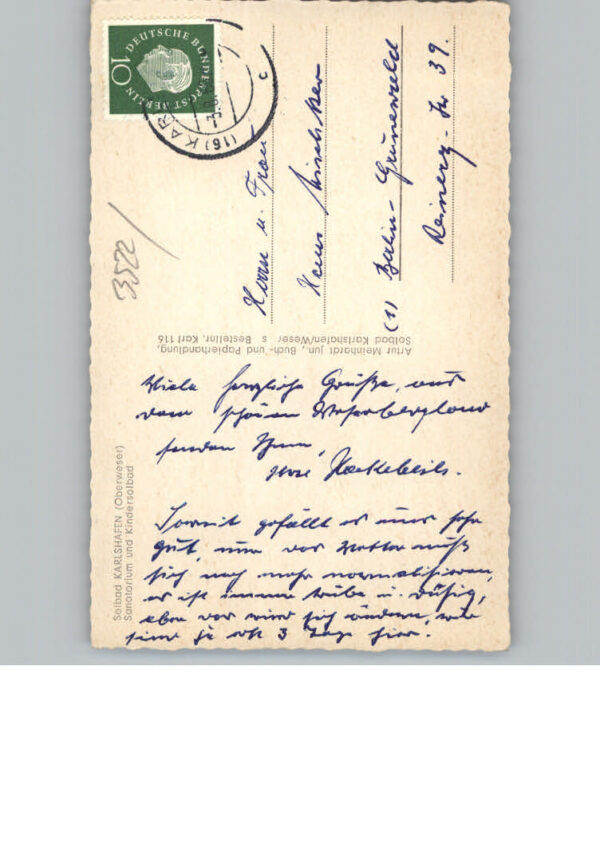 DEUTSCHE BUNDESPOST BERLIN
10
(16) KAR
Herrn u. Frau
Hans
(1) Berlin-Grunewald
Reinerz-Str 39.
3522
Artur Meinhardt jun., Buch- und Papierhandlung,
Solbad Karlshafen/Weser s Bestellnr. Karl 116
Solbad KARLSHAFEN (Oberweser)
Sanatorium und Kindersolbad
Viele herzliche Grüße, aus
dem schönen Weserbergland
senden Ihnen,
Soweit gefällt es uns sehr
gut, nur das Wetter muß
sich noch mehr normalisieren,
es ist immer trübe u. dusig,
aber das wird sich ändern, wir
sind ja erst 3 Tage hier.